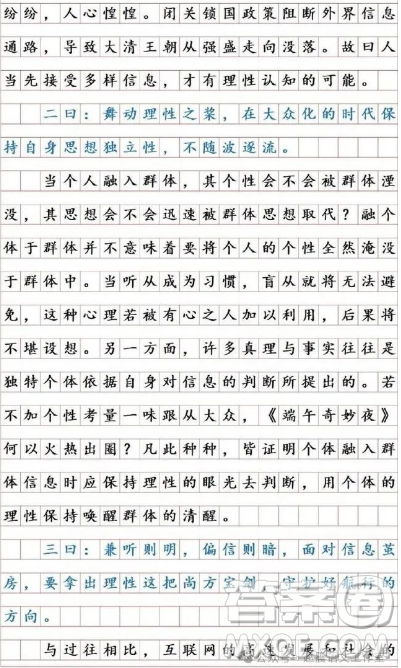 纷纷，人心惶惶。闭关锁国政策阻断外界信息
通路，导致大清王朝从强盛走向没落。故曰人
当先接受多样信息，才有理性认知的可能。
二曰：舞动理性之桨，在大众化的时代保
持自身思想独立性，不随波逐流。
当个人融入群体，其个性会不会被群体湮
没，其思想会不会迅速被群体思想取代？融个
体于群体并不意味着要将个人的个性全然淹没
于群体中。当听从成为习惯，盲从就将无法避
免，这种心理若被有心之人加以利用，后果将
不堪设想。另一方面，许多真理与事实往往是
独特个体依据自身对信息的判断所提出的。若
不加个性考量一味跟从大众，《端午奇妙夜》
何以火热出圈？凡此种种，皆证明个体融入群
体信息时应保持理性的眼光去判断，用个体的
理性保持唤醒群体的清醒。
三曰：兼听则明，偏信则暗，面对信息茧
房，要拿出理性这把尚方宝剑，守护好航行的
方向。
与过往相比，互联网的高速发展和社会的
答案圈